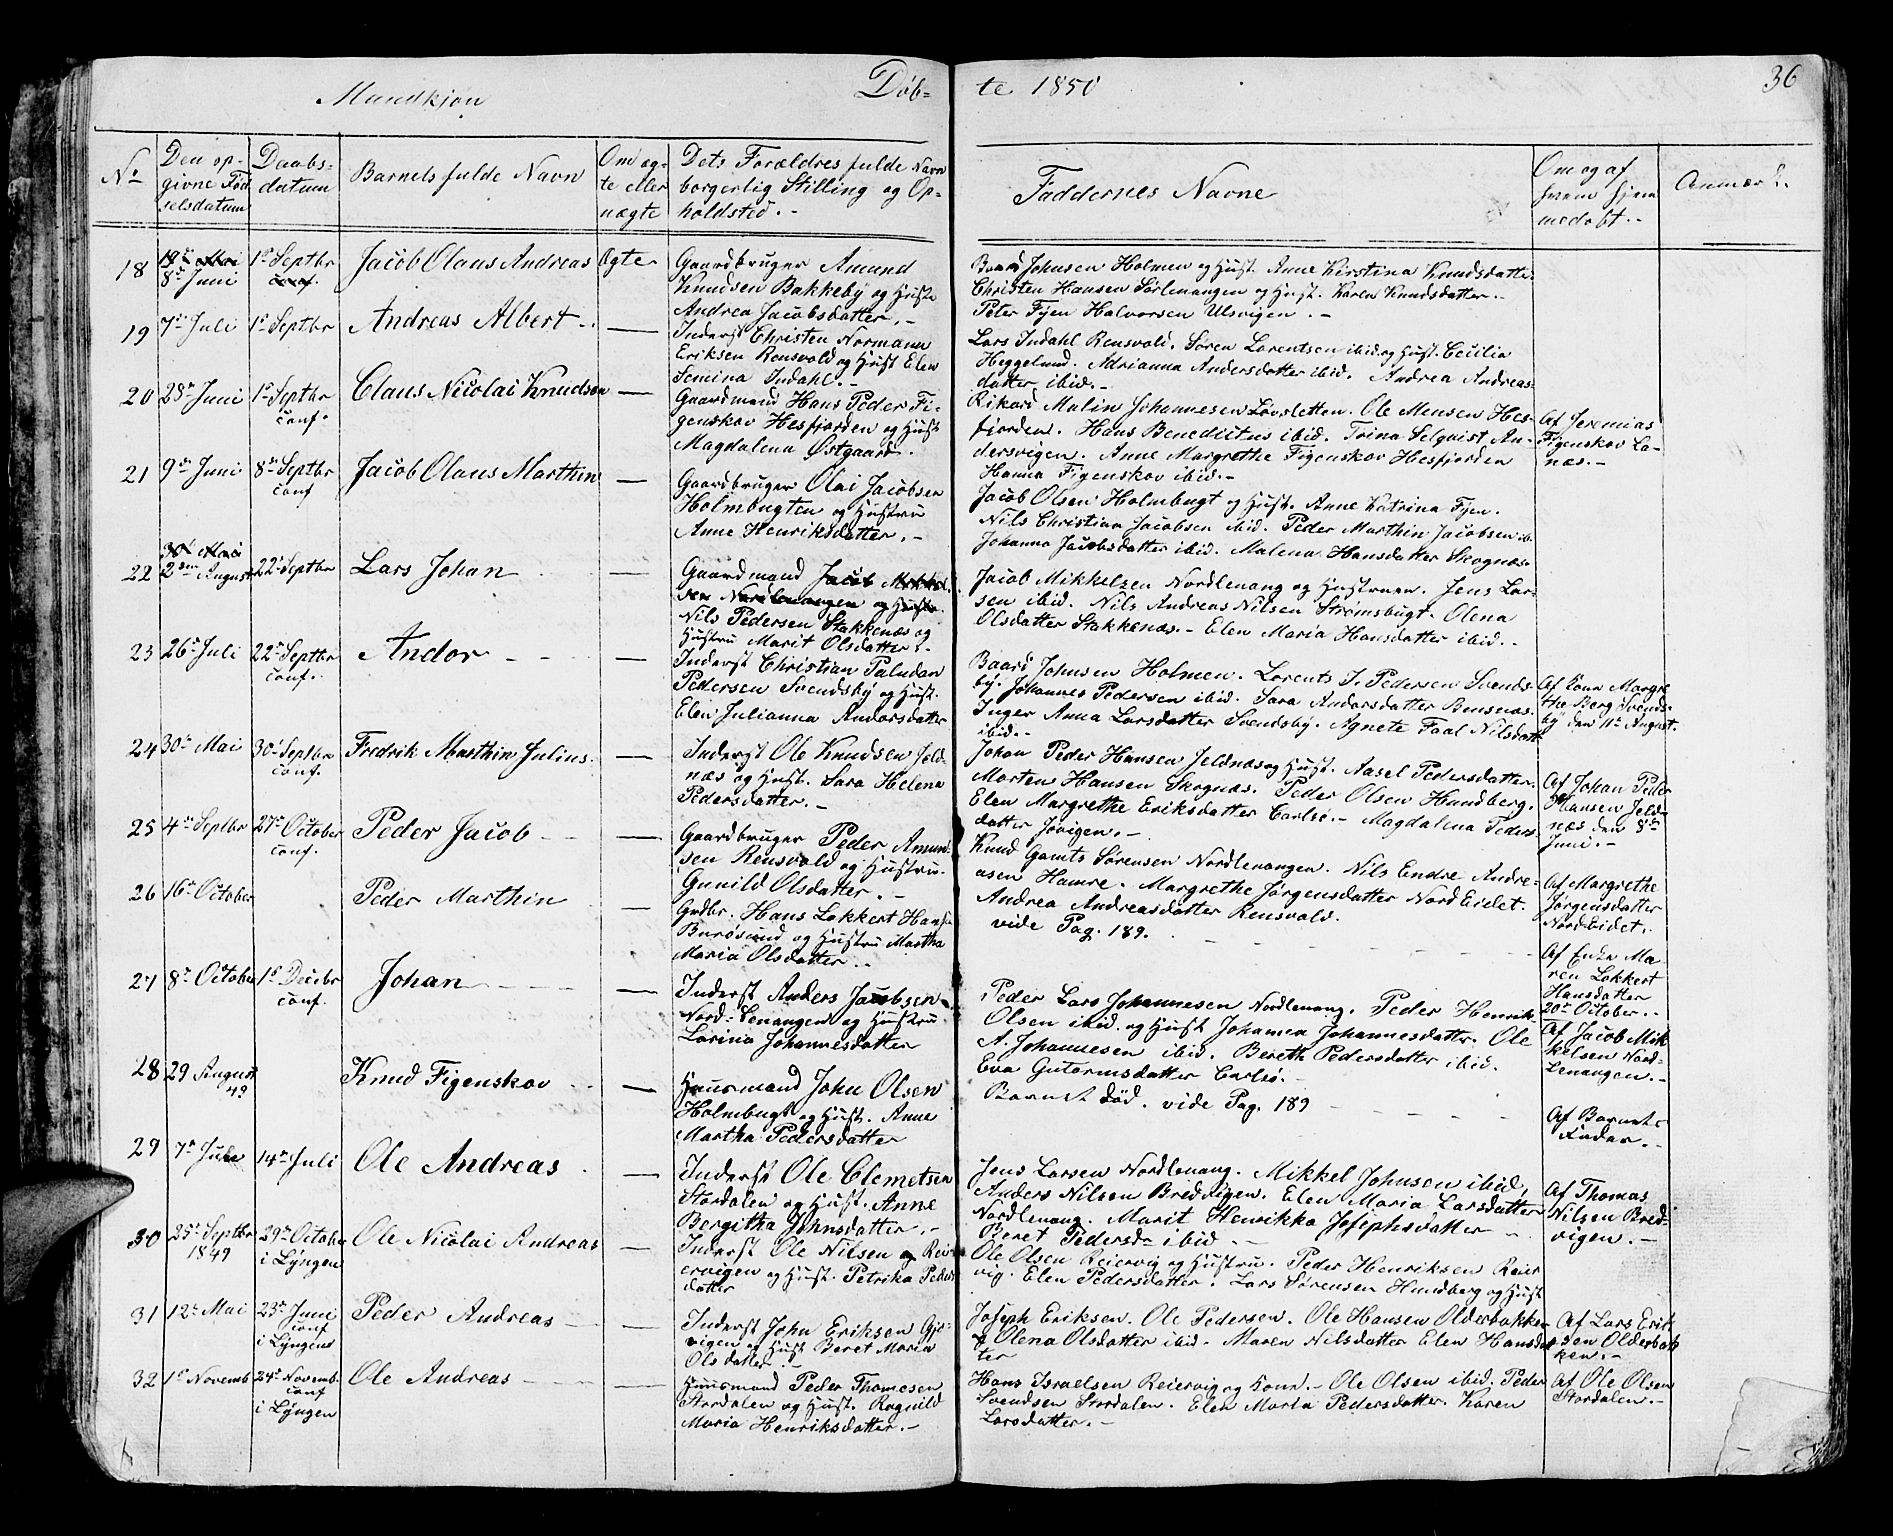 Mandkjøn
Døb=
te 1850
36
No
Den op-
givne Fød
selsdatum
Daabs-
datum
Barnets fulde Navn
Om æg-
te eller
uægte
Dets Forældres fulde Navn
borgerlig Stilling og Op-
holdsted.-
Faddernes Navne
Om og af
hvem hjem
medøbt.-
Anmærk.
18
8de Juni
1e Septbr
Jacob Olaus Andreas
Ægte
Gaardbruger Amund
Knudsen Bakkeby og Hustr
Andrea Jacobsdatter.-
Baard Johnsen Holmen og Hust. Anne Kirstina Knudsdatter
Christen Hansen Sørlenangen og Hust. Karen Knudsdatter.-
Peter Fjen Halvorsen Ulsvigen.-
19
7de Juli
1e Septbr
Andreas Albert
Inderst Christen Normann
Eriksen Rensvold og Hust Elen
Semina Indahl.-
Lars Indahl Rensvold. Søren Lorentsen ibid og Hust. Cecilia
Heggelund. Adrianna Andersdatter ibid. Andrea Andreas-
datter ibid.-
20
28de Juni
1e Septbr
conf.
Claus Nicolai Knudsen
Gaardmand Hans Peder Fi-
genskov Hesfjorden og Hust
Magdalena Østgaard.
Rikard Malin Johannesen Løvsletten. Ole Mensen Hes-
fjorden. Hans Benedictus ibid. Trina Selqvist An-
dersvigen. Anne Margrethe Figenskov Hesfjorden
Hanna Figenskov ibid.-
Af Jeremias
Figenskov La-
næs.-
21
9de Juni
8de Septbr
conf
Jacob Olaus Marthin
Gaardbruger Olai Jacobsen
Holmbugten og Hustru
Anne Henriksdatter.-
Jacob Olsen Holmbugt og Hust. Anne Katrina Fjen.
Nils Christian Jacobsen ibid. Peder Marthin Jacobsen ib
Johanna Jacobsdatter ibid. Malena Hansdatter Skognæs.
22
2den August
22de Septbr
Lars Johan
Gaardmand Jacob Mikkel
sen Nordlenangen og Hustru
Nils Pedersen Stakkenæs og
Hustru Marit Olsdatter.-
Jacob Mikkelsen Nordlenang og Hustruen. Jens Lar-
sen ibid. Nils Andreas Nilsen Strømsbugt. Olena
Olsdatter Stakkenæs.- Elen Maria Hansdatter ibid.-
23
26de Juli
22de Septbr
conf.
Andor
Inderst Christian Paludan
Pedersen Svendsby og Hust.
Elen Julianna Andorsdatter
Baard Johnsen Holmen. Lorents J. Pedersen Svends-
by. Johannes Pedersen ibid. Sara Andorsdatter Bensnæs.
Inger Anna Larsdatter Svendsby. Agnete Faal Nilsdatt
ibid.-
Af Kone Margre
the Berg Svends-
by den 11te August.
24
30te Mai
30te Septbr
conf.
Fredrik Marthin Julius
Inderst Ole Knudsen Jeld-
næs og Hust. Sara Helena
Pedersdatter.-
Johan Peder Hansen Jeldnæs og Hust. Aasel Pedersdatter.
Morten Hansen Skognæs. Peder Olsen Hundberg.
Elen Margrethe Eriksdatter Carlsø.- Magdalena Peders-
datter Jøvigen.-
Af Johan Peder
Hansen Jeld-
næs den 8de
Juni.-
25
4de Septbr
27de October
conf.
Peder Jacob
Gaardbruger Peder Amun-
sen Rensvold og Hustru.
Gunild Olsdatter.-
Knud Gamts Sørensen Nordlenangen. Nils Endre Andre-
asen Hamre. Margrethe Jørgensdatter NordEidet.
Andrea Andreasdatter Rensvold.
Af Margrethe
Jørgensdatter
NordEidet.
26
16de October
Peder Marthin
Grdbr. Hans Lokkert Hans-
Burøsund og Hustru Martha
Maria Olsdatter.-
vide Pag. 189.
Af Enke Ma
ren Lokkert
Hansdatter
20de October.-
27
8de October
1e Decbr
conf.
Johan
Inderst Anders Jacobsen
Nord-Lenangen og Hustru
Lorina Johannesdatter
Peder Lars Johannesen Nordlenang. Peder Henrik
Olsen ibid. og Hust Johanna Johannesdatter. Ole
A. Johannesen ibid. Bereth Pedersdatter ibid.
Eva Gutormsdatter Carlsø.-
Af Jacob Mik
kelsen Nord-
Lenangen.-
28
29 August
49
Knud Figenskov
Huusmand John Olsen
Holmbugt og Hust. Anne
Martha Pedersdatter
Barnet død. vide Pag. 189
Af Barnets
Fader.-
29
7de Jule
14de Juli
Ole Andreas
Inderst Ole Clemetsen
Stordalen og Hust. Anne
Bergitha Johnsdatter.-
Jens Larsen Nordlenang. Mikkel Johnsen ibid,
Anders Nilsen Bredvigen. Elen Maria Larsdatter
Nordlenang. Marit Henrikka Josephsdatter
Beret Pedersdr ibid.
Af Thomas
Nilsen Bred-
vigen.-
30
25de Septbr
1849
29de October
i Lyngen
Ole Nicolai Andreas
Inderst Ole Nilsen og Reir
ervigen og Hust. Petrika Peders
datter
Ole Olsen Reiervig og Hustru. Peder Henriksen Reier
vig. Elen Pedersdatter. Lars Sørensen Hundberg og Hust
31
12te Mai
23de Juni
conf
i Lyngen
Peder Andreas
Inderst John Eriksen Gjø-
vigen og Hust Beret Maria
Olsdatter.-
Joseph Eriksen. Ole Pedersen. Ole Hansen Olderbakken
og Olena Olsdatter ibid. Maren Nilsdatter Elen Hansdat
ter
Af Lars Erik
sen Olderbak
ken.-
32
1e Novemb
24de Novemb.
conf
i Lyngen
Ole Andreas
Huusmand Peder Thomesen
Stordalen og Hust. Ragnild
Maria Henriksdatter.-
Hans Israelsen Reiervig og Kone.- Ole Olsen ibid. Peder
Svendsen Stordalen. Elen Marta Pedersdatter. Karen
Larsdatter.-
af Ole Olsen
Stordalen.-